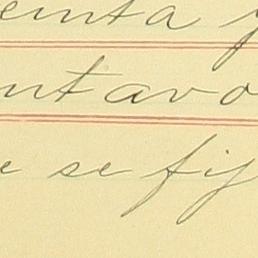 einta y
ntavo
e se fij